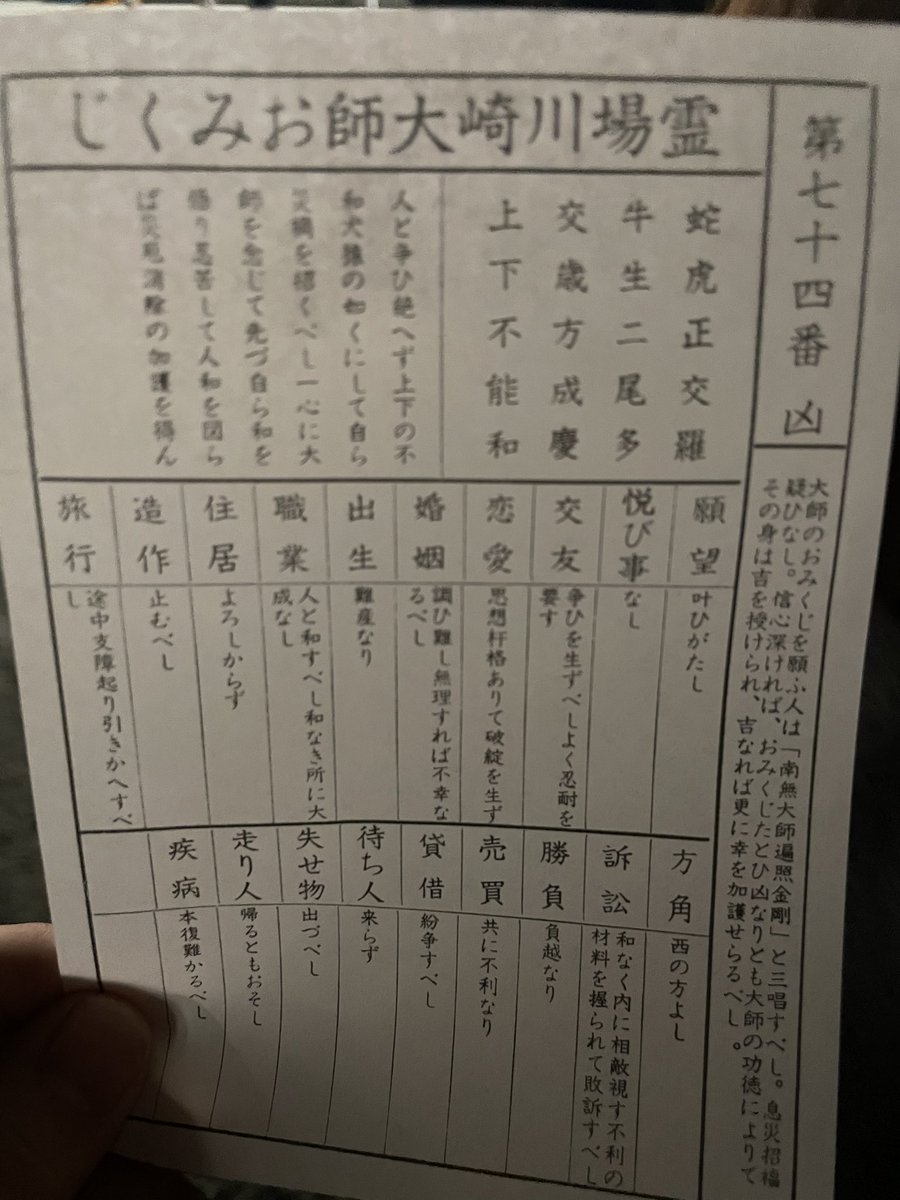 第七十四番 凶
大師のおみくじを願ふ人は「南無大師遍照金剛」と三唱すべし。息災招福
疑ひなし。信心深ければ、おみくじたとひ凶なりとも大師の功徳によりて
その身は吉を授けられ、吉なれば更に幸を加護せらるべし。
霊場川崎大師おみくじ
蛇虎正交羅
牛生二尾多
交歳方成慶
上下不能和
人と争ひ絶へず上下の不
和犬猿の如くにして自ら
災禍を招くべし一心に大
師を念じて先づ自ら和を
悟り忍苦して人和を図ら
ば災厄消除の加護を得ん
願望
叶ひがたし
悦び事
なし
交友
争ひを生ずべしよく忍耐を
要す
恋愛
思想杆格ありて破綻を生ず
婚姻
調ひ難し無理すれば不幸な
るべし
出生
難産なり
職業
人と和すべし和なき所に大
成なし
住居
よろしからず
造作
止むべし
旅行
途中支障起り引きかへすべ
し
方角
西の方よし
訴訟
和なく内に相敵視す不利の
材料を握られて敗訴すべし
勝負
負越なり
売買
共に不利なり
貸借
紛争すべし
待ち人
来らず
失せ物
出づべし
走り人
帰るともおそし
疾病
本復難かるべし